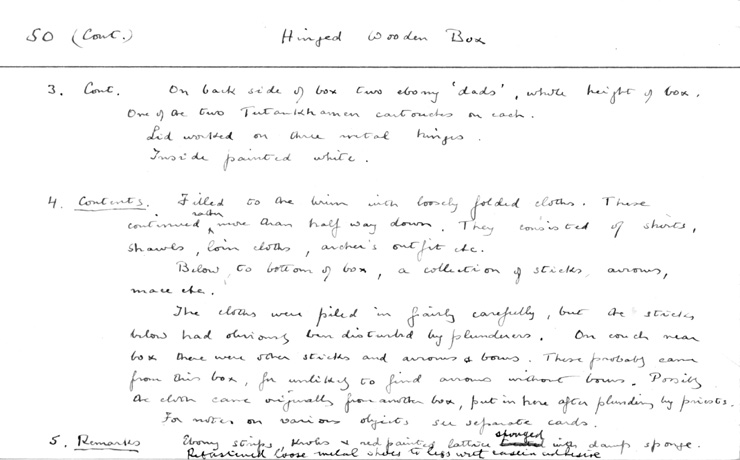 50 (Cont.) Hinged Wooden Box
3. Cont. On back side of box two ebony 'dads', whole height of box.
One of the two Tutankhamen cartouches on each.
Lid worked on three metal hinges.
Inside painted white.
4. Contents. Filled to the brim with loosely folded cloths. These
continued rather more than half way down. They consisted of shirts,
shawls, loin cloths, archer's outfit etc.
Below, to bottom of box, a collection of sticks, arrows,
mace etc.
The cloths were piled in fairly carefully, but the sticks
below had obviously been disturbed by plunderers. On couch near
box there were other sticks and arrows & bows. These probably came
from this box, for unlikely to find arrows without bows. Possibly
the cloth came originally from another box, put in here after plundering by priests.
For notes on various objects see separate cards.
5. Remarks Ebony strips, knobs & red painted lattice sponged with damp sponge.
Refastened loose metal shoes to legs with casein adhesive